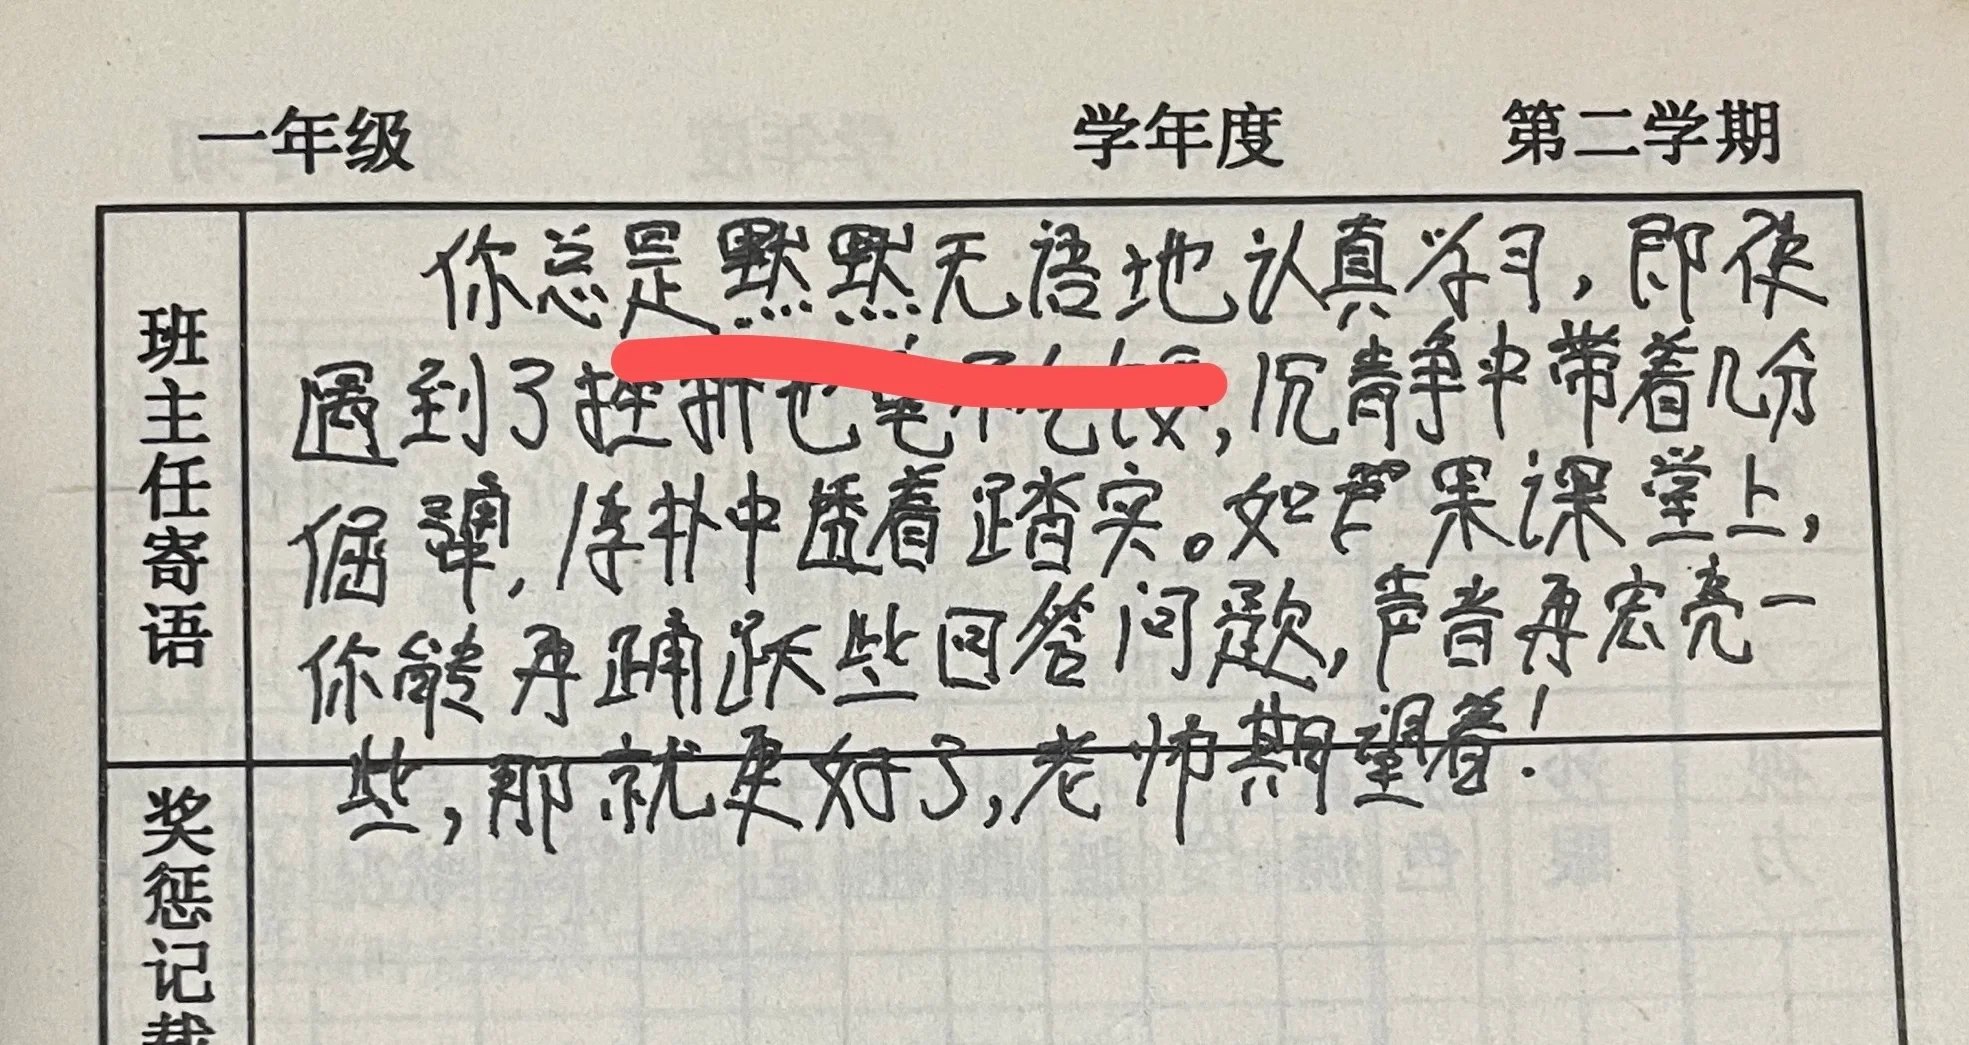 一年级 学年度 第二学期
班主任寄语
你总是默默无语地认真学习，即使
遇到了挫折也毫不气馁，沉静中带着几分
倔强，淳朴中透着踏实。如果课堂上，
你能再踊跃些回答问题，声音再宏亮一
些，那就更好了，老师期望着！
奖惩记载